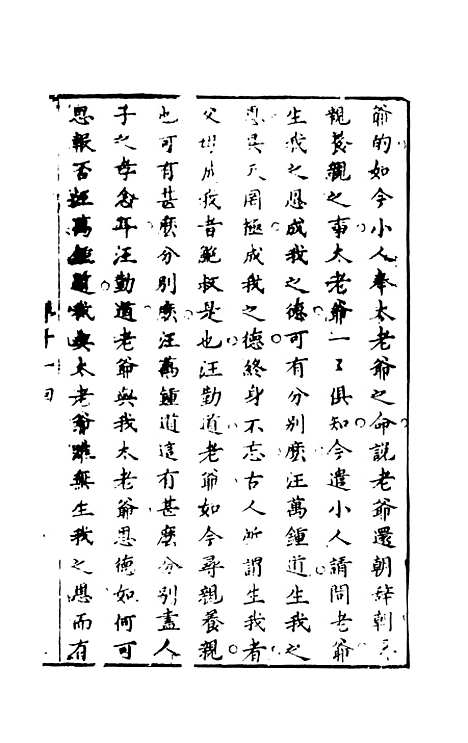 爺的如今小人奉太老爺之命說老爺還朝辞朝
親養親之事太老爺一一俱知今遣小人請問老爺
生我之恩成我之德可有分別麽汪萬鍾道生我之
恩昊天罔極成我之德終身不忘古人所謂生我者
父母成我者鮑叔是也汪勤道老爺如今尋親養親
也可有甚麽分別麽汪萬鍾道這有甚麽分別盡人
子之孝念耳汪勤道老爺與我太老爺恩德如何可
恩報否汪萬鍾道我與太老爺雖無生我之恩而有
第十一回